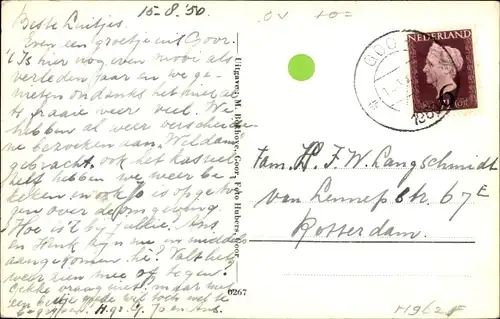 15-8.50
Beste Luitjes.
Even een groetje uit Goor.
't Is hier nog even mooi als
verleden jaar en we ge-
nieten ondanks het niet al
te fraaie weer veel. We
hebben al weer verscheidene
bezoeken aan Weldam
gebracht. ook het kasteel
zelf hebben we weer be-
keken en ook Jo is opgeto-
gen over de omgeving.
Hoe is 't bij jullie? Ans
en Henk zijn nu inmiddels
aangekomen hè? Valt het
weer mee of tegen?
een beetje goede wil toch wel te
H.gr. G. Jo en Ans.
Uitgave: M. Goor; Foto Hubers, Goor
0267
GOOR
NEDERLAND
6
Fam. H. F. W. Langschmidt
van Lennepstr. 67E
Rotterdam.